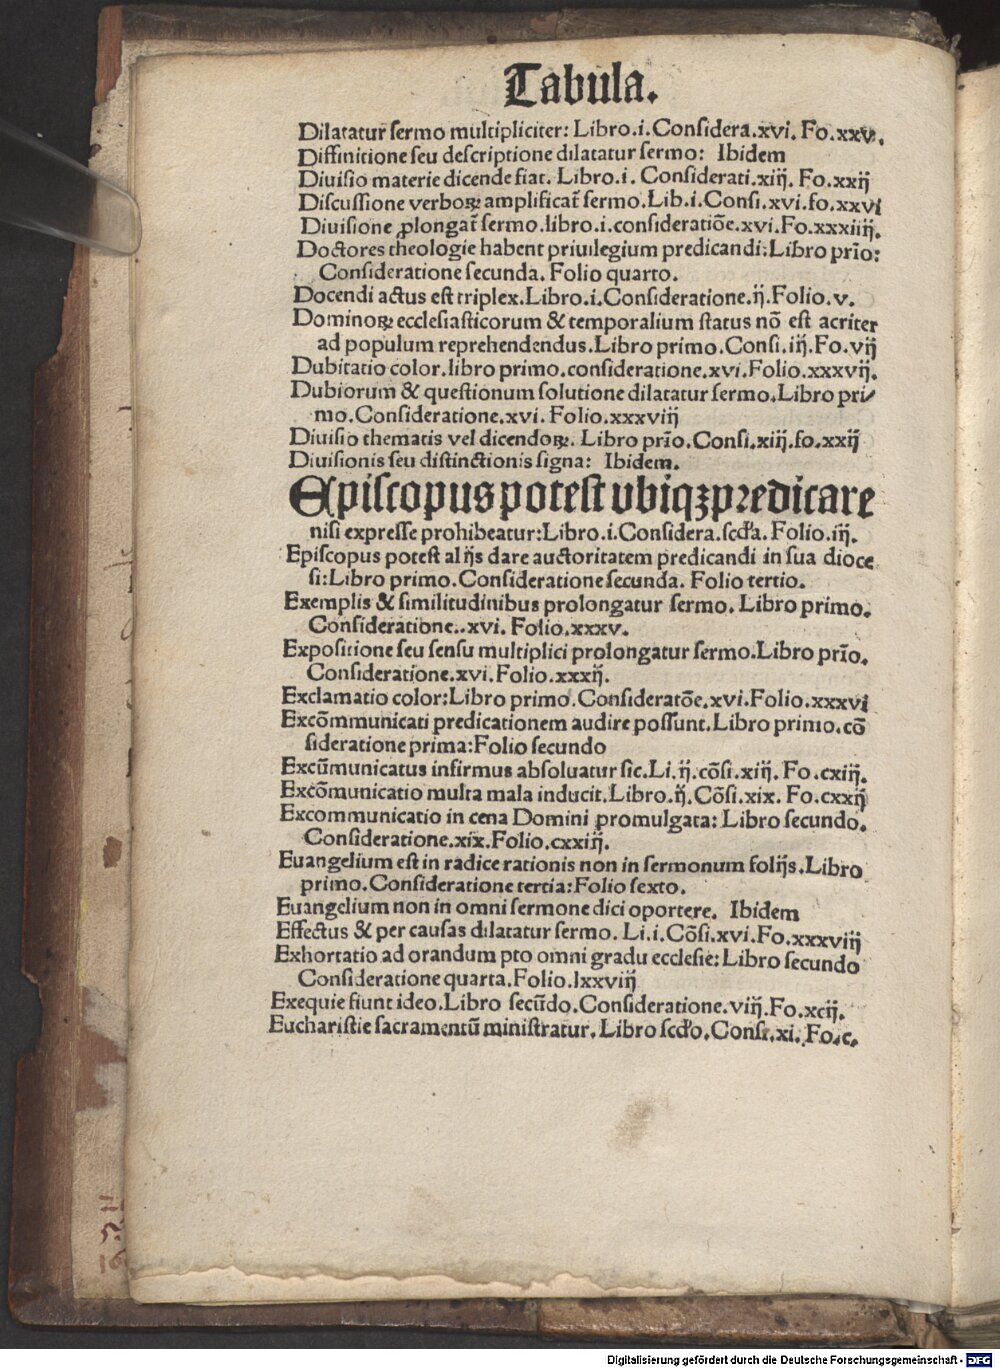 Tabula.
Dilatatur sermo multipliciter: Libro.i.Considera.xvi. Fo.xxv.
Diffinitione seu descriptione dilatatur sermo: Ibidem
Diuisio materie dicende fiat. Libro.i. Considerati.xiij. Fo.xxij
Discussione verboꝝ amplificat̃ sermo.Lib.i.Consi.xvi.fo.xxvi
Diuisione ꝓlongat̃ sermo.libro.i.consideratiõe.xvi.Fo.xxxiiij.
Doctores theologie habent priuilegium predicandi:Libro prĩo:
Consideratione secunda. Folio quarto.
Docendi actus est triplex.Libro.i.Consideratione.ij.Folio.v.
Dominoꝝ ecclesiasticorum & temporalium status nõ est acriter
ad populum reprehendendus.Libro primo.Consi.iij.Fo.vij
Dubitatio color.libro primo.consideratione.xvi.Folio.xxxvij.
Dubiorum & questionum solutione dilatatur sermo.Libro pri⸗
mo.Consideratione.xvi. Folio.xxxviij
Diuisio thematis vel dicendoꝝ. Libro prĩo.Consi.xiij.fo.xxij
Diuisionis seu distinctionis signa: Ibidem.
Episcopus potest vbiqꝫ predicare
nisi expresse prohibeatur:Libro.i.Considera.scďa. Folio.iij.
Episcopus potest alijs dare auctoritatem predicandi in sua dioce
si:Libro primo.Consideratione secunda. Folio tertio.
Exemplis & similitudinibus prolongatur sermo. Libro primo.
Consideratione..xvi. Folio.xxxv.
Expositione seu sensu multiplici prolongatur sermo.Libro prĩo.
Consideratione.xvi.Folio.xxxij.
Exclamatio color:Libro primo.Consideratõe.xvi.Folio.xxxvi
Excõmunicati predicationem audire possunt.Libro primo.cõ
sideratione prima:Folio secundo
Excũmunicatus infirmus absoluatur sic.Li.ij.cõsi.xiij. Fo.cxiij.
Excõmunicatio multa mala inducit.Libro.ij.Cõsi.xix. Fo.cxxij
Excommunicatio in cena Domini promulgata: Libro secundo.
Consideratione.xix.Folio.cxxiij.
Euangelium est in radice rationis non in sermonum folijs.Libro
primo.Consideratione tertia:Folio sexto.
Euangelium non in omni sermone dici oportere. Ibidem
Effectus & per causas dilatatur sermo. Li.i.Cõsi.xvi.Fo.xxxviij
Exhortatio ad orandum pro omni gradu ecclesie: Libro secundo
Consideratione quarta.Folio.lxxviij
Exequie fiunt ideo.Libro secũdo.Consideratione.viij.Fo.xcij.
Eucharistie sacramentũ ministratur. Libro scďo.Consi.xi. Fo.c.
Digitalisierung gefördert durch die Deutsche Forschungsgemeinschaft - DFG